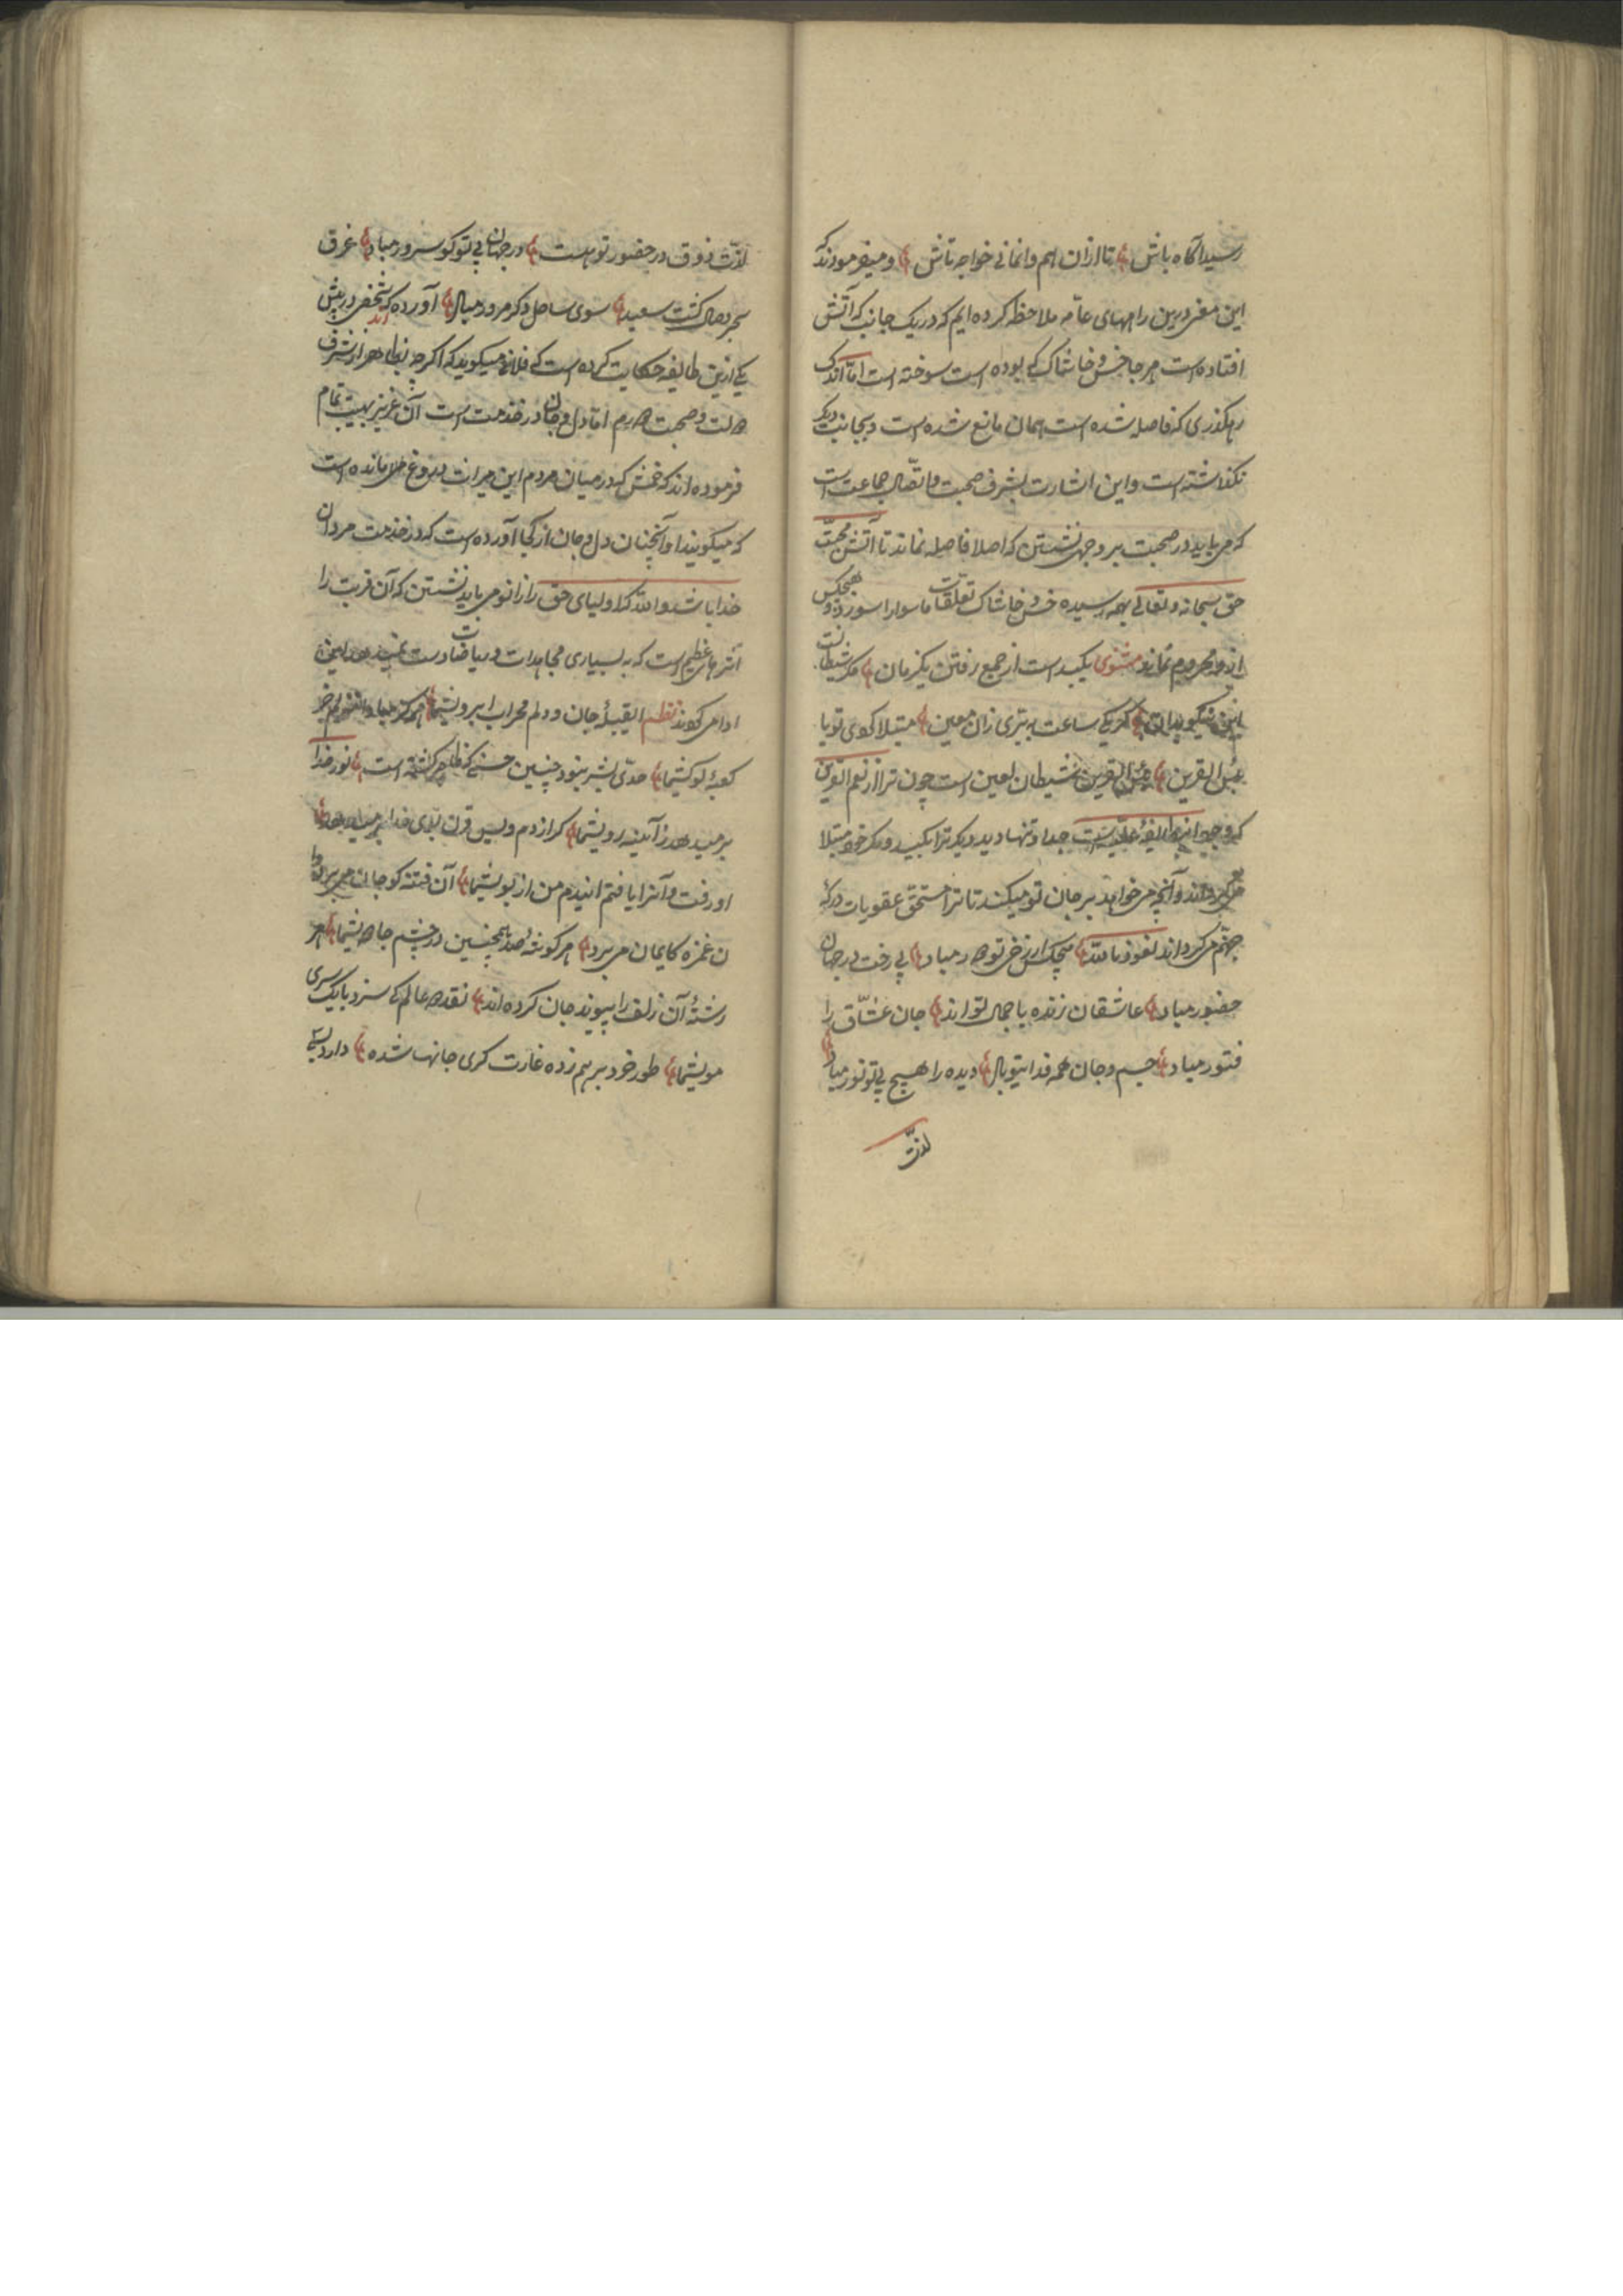 رسید آگاه باش تا ازان هم وانمانی خواجه تاش و میفرمودند که
این معنی درین راههای عامّه ملاحظه کرده ایم که در یک جانب که آتش
افتاده است هر جا خس و خاشاک که بوده است سوخته است امّا اندک
رهگذری که فاصله شده است همان مانع شده است و بجانب دیگر
نگذاشته است و این اشارت بشرف صحبت و اتّصال جماعت است
که می باید در صحبت بر وجهی نشستن که اصلا فاصله نماند تا آتش محبّت
حق سبحانه و تعالی بهمه رسیده خس و خاشاک تعلّقات ماسوا را سوزد و هیچکس
ازو محروم نماند مثنوی یکبدست از جمع رفتن یکزمان مکر شیطانست
این نیکو بدان گر یکی ساعت
بئس القرین بئس القرین شیطان لعین است چون ترا از نعم القرین
که وجود این طایفهٔ علیّه است جدا و تنها دید دیگر ترا بکید و مکر خود مبتلا
می گرداند و آنچه می خواهد بر جان تو میکند تا ترا مستحق عقوبات درکهٔ
جهنّم می گرداند نعوذ بالله هیچکس از رخ تو دور مباد بی رخت در جهان
حضور مباد عاشقان زنده با جمال تو اند جان عشّاق را
فتور مباد جسم و جان همه فدایتو بال دیده را هیچ بی تو نور مباد
لذّت
لذّت ذوق در حضور تو هست در جهان بی تو کو سرور مباد غرق
بحر وصال گشت سعید سوی ساحل دگر مرور مباد آورده اند که شخصی در پیش
یکی ازین طایفه حکایت کرده است که فلانی میگوید که اگر چه بظاهر از شرف
حالت و صحبت دورم امّا دل و جان در خدمت است آن عزیز بهیبت تمام
فرموده اند که خمش که در میان مردم این میراث دروغ ملا مانده است
که میگویند او آنچنان دل و جان از کجا آورده است که در خدمت مردان
خدا باشد والله که اولیای حق را زانو می باید نشستن که آن قربت را
اثرهای عظیم است که به بسیاری مجاهدات و ریاضات دست نمیدهد
ادا می کوند نظم ای قبلهٔ جان و دلم محراب ابروی شما
کعبهٔ کوی شما حدّ بشر نبود چنین حسنی که ظاهر گشته است نور خدا
بر میدهد ز آیینه روی شما کز ازدم ویس قرن بوی خدا
او رفت و آنرا یافتم اینندم من از بوی شما آن فتنه کو جان می برد
ن غمزه کایمان می برد هر گوشهٔ صد همچنین در چشم جادوی شما
رشتهٔ آن زلف را پیوند جان کرده اند نقد دو عالم کی سزد با یک سری
موی شما طور خرد بر هم زده غارت گری جانها شده دارد